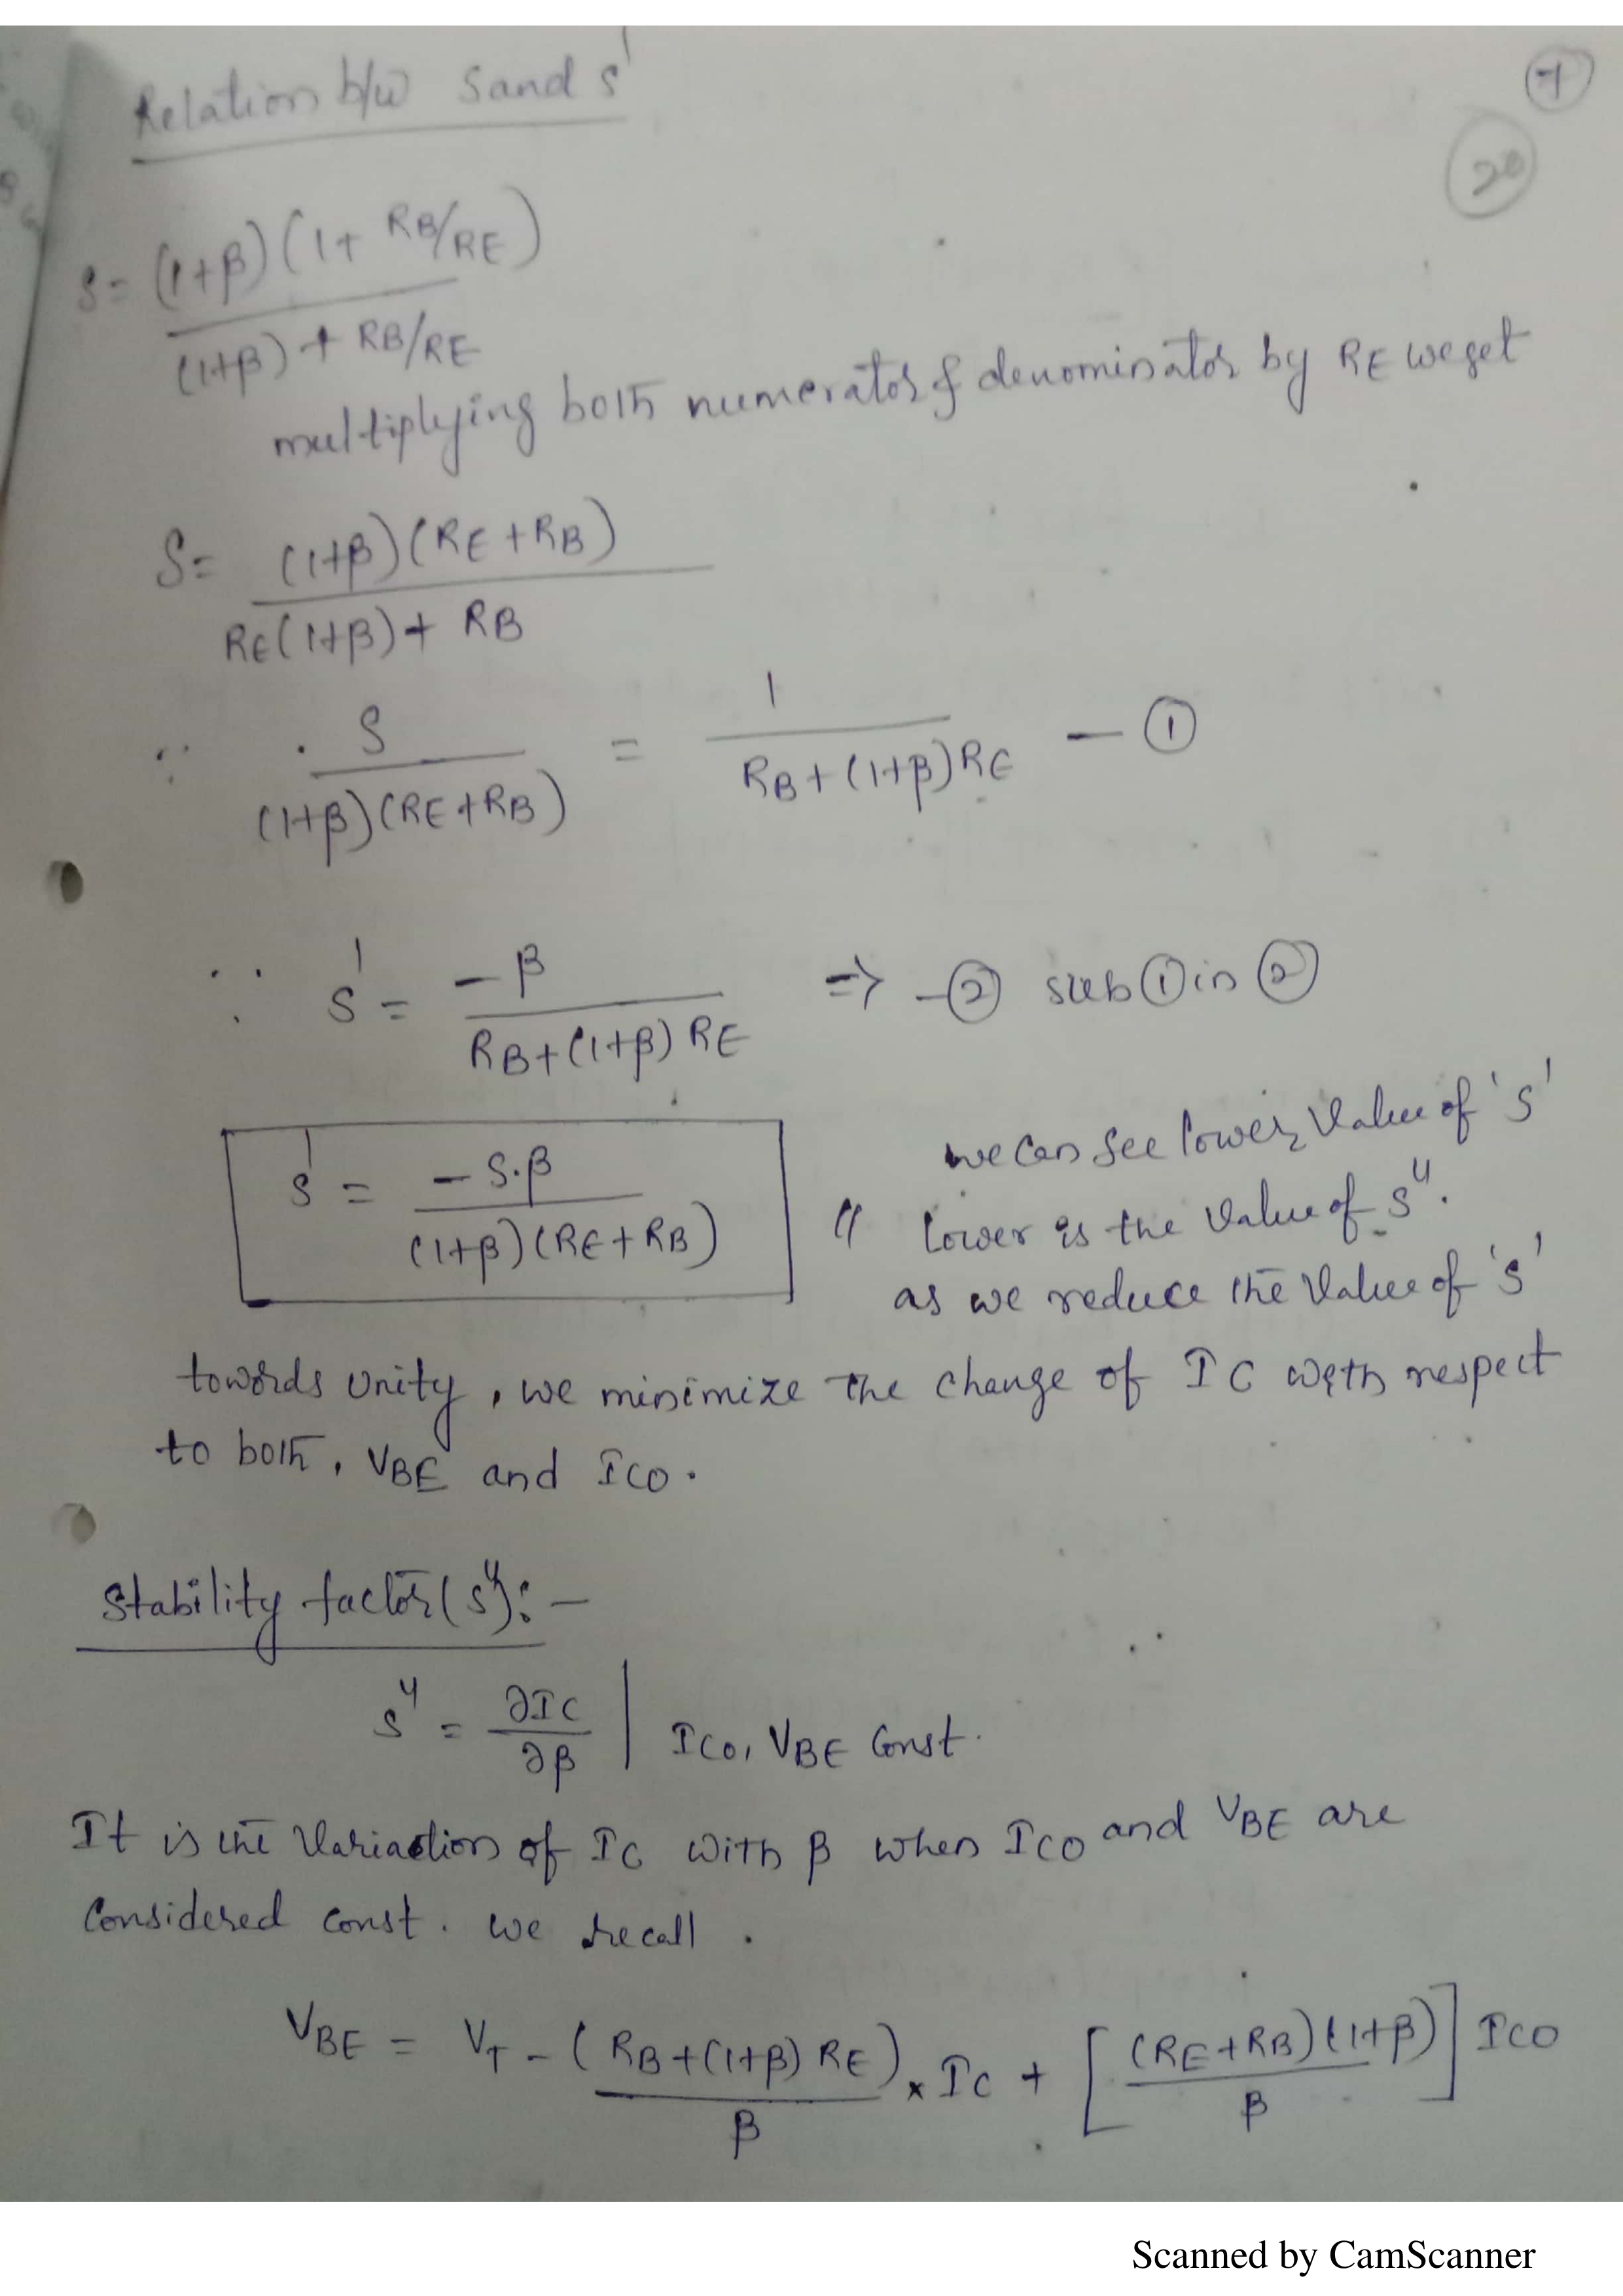 Relation b/w S and S'
7
20
S = (1+β)(1+ RB/RE)
(1+β) + RB/RE
multiplying both numerator & denominator by RE we get
S = (1+β)(RE+RB)
RE(1+β)+ RB
∵ S / (1+β)(RE+RB) = 1 / RB+(1+β)RE — ①
∵ S' = -β / RB+(1+β) RE => -② sub ① in ②
S' = -S.β / (1+β)(RE+RB)
we can see lower value of 's'
lower is the value of S".
as we reduce the value of 's'
towards unity, we minimize the change of IC with respect
to both, VBE and ICO.
Stability factor (S"): —
S" = ∂IC / ∂β | ICO, VBE Const.
It is the Variation of IC with β when ICO and VBE are
Considered const. we recall.
VBE = VT - (RB+(1+β) RE / β) × IC + [(RE+RB)(1+β) / β] ICO
Scanned by CamScanner